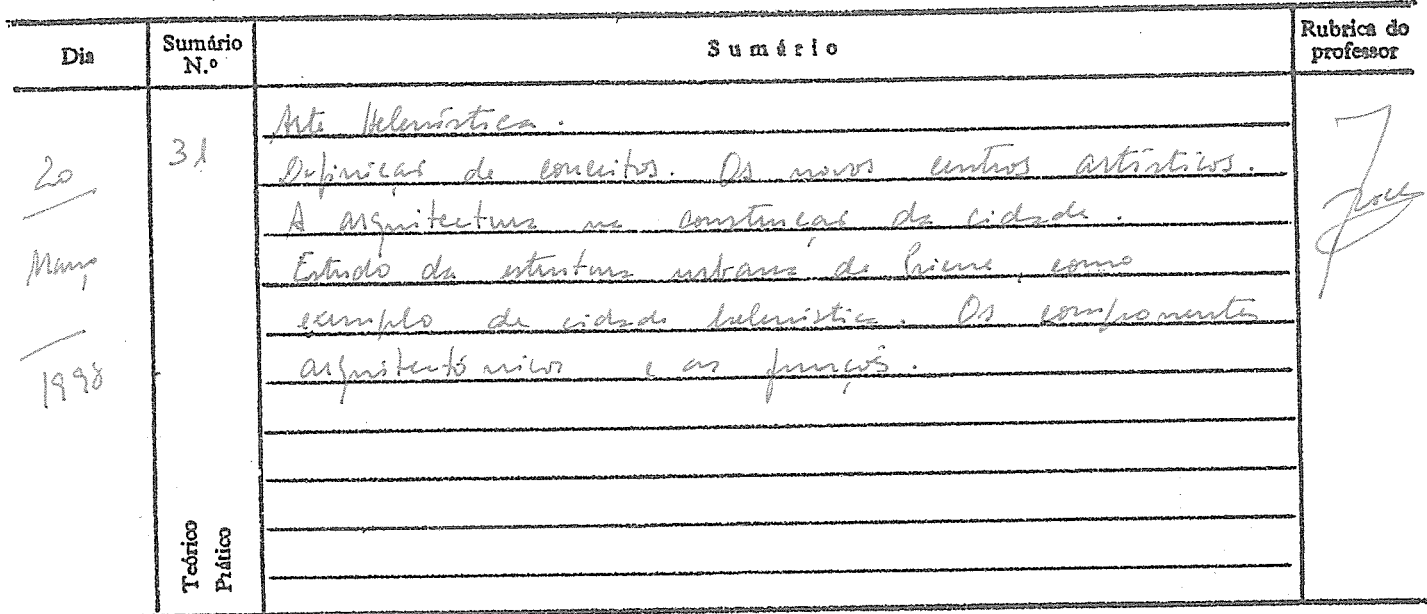 Dia
Sumário N.º
Sumário
Rubrica do professor
20
Março
1998
31
Arte Helenística.
Definição de conceitos. Os novos centros artísticos.
A arquitectura na construção da cidade.
Estudo da estrutura urbana de Priene, como
exemplo de cidade helenística. Os componentes
arquitectónicos e as funções.
Teórico
Prático